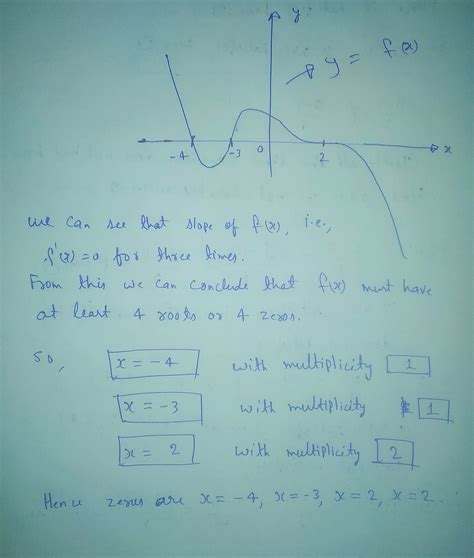 y
y = f(x)
-4 -3 0 2 x
we can see that slope of f(x), i.e.,
f'(x) = 0 for three times.
From this we can conclude that f(x) must have
at least 4 roots or 4 zeros.
So, x = -4 with multiplicity 1
x = -3 with multiplicity 1
x = 2 with multiplicity 2
Hence zeros are x = -4, x = -3, x = 2, x = 2.